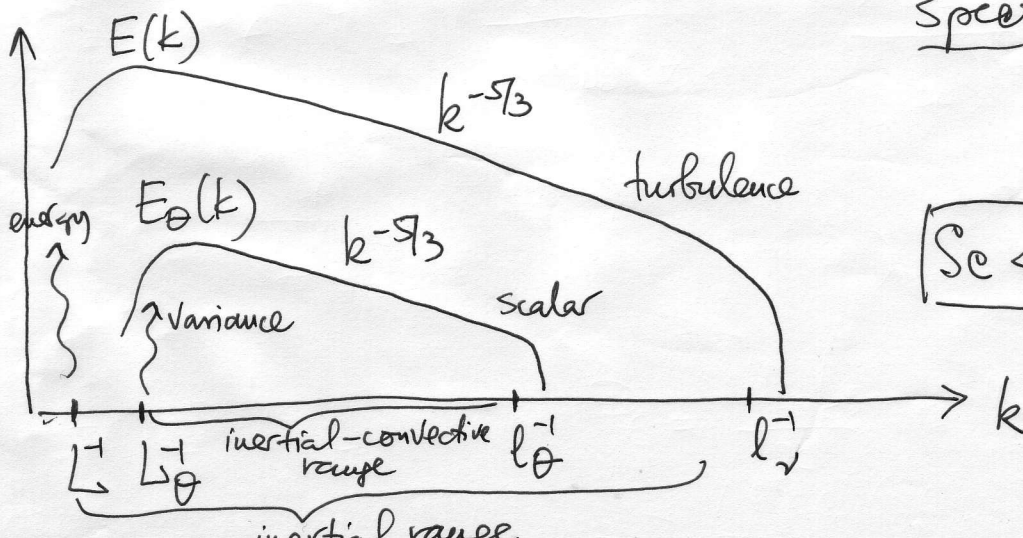 E(k)
k^{-5/3}
turbulence
energy
E_θ(k)
k^{-5/3}
variance
scalar
Sc <
L^{-1}
L_θ^{-1}
inertial-convective
range
l_θ^{-1}
l_ν^{-1}
k
inertial range